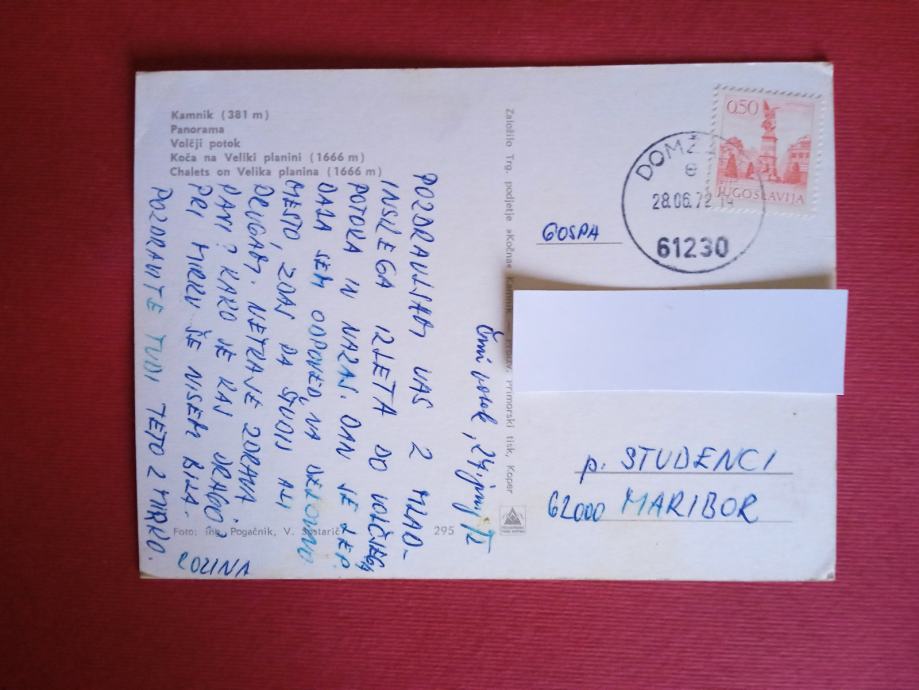 Kamnik (381 m)
Panorama
Volčji potok
Koča na Veliki planini (1666 m)
Chalets on Velika planina (1666 m)
POZDRAVLJAM VAS Z MLAD-
INSKEGA IZLETA DO VOLČJEGA
POTOKA IN NAZAJ. DAN JE LEP.
DALA SEM ODPOVED NA DELOVNO
MESTO ZDAJ PA ŠTUDIJ ALI
DRUGAM. NETKA JE ZDRAVA.
VANI? KAKO JE KAJ DRAGO?
PRI MIRKU ŠE NISEM BILA.
POZDRAVITE TUDI TETO Z MIRKO.
Foto: ing. Pogačnik, V.
295
Založilo Trg. podjetje »Kočna« Kamnik —
Primorski tisk, Koper
potok,
0,50
JUGOSLAVIJA
e
28.06.72
61230
GOSPA
p. STUDENCI
62000 MARIBOR